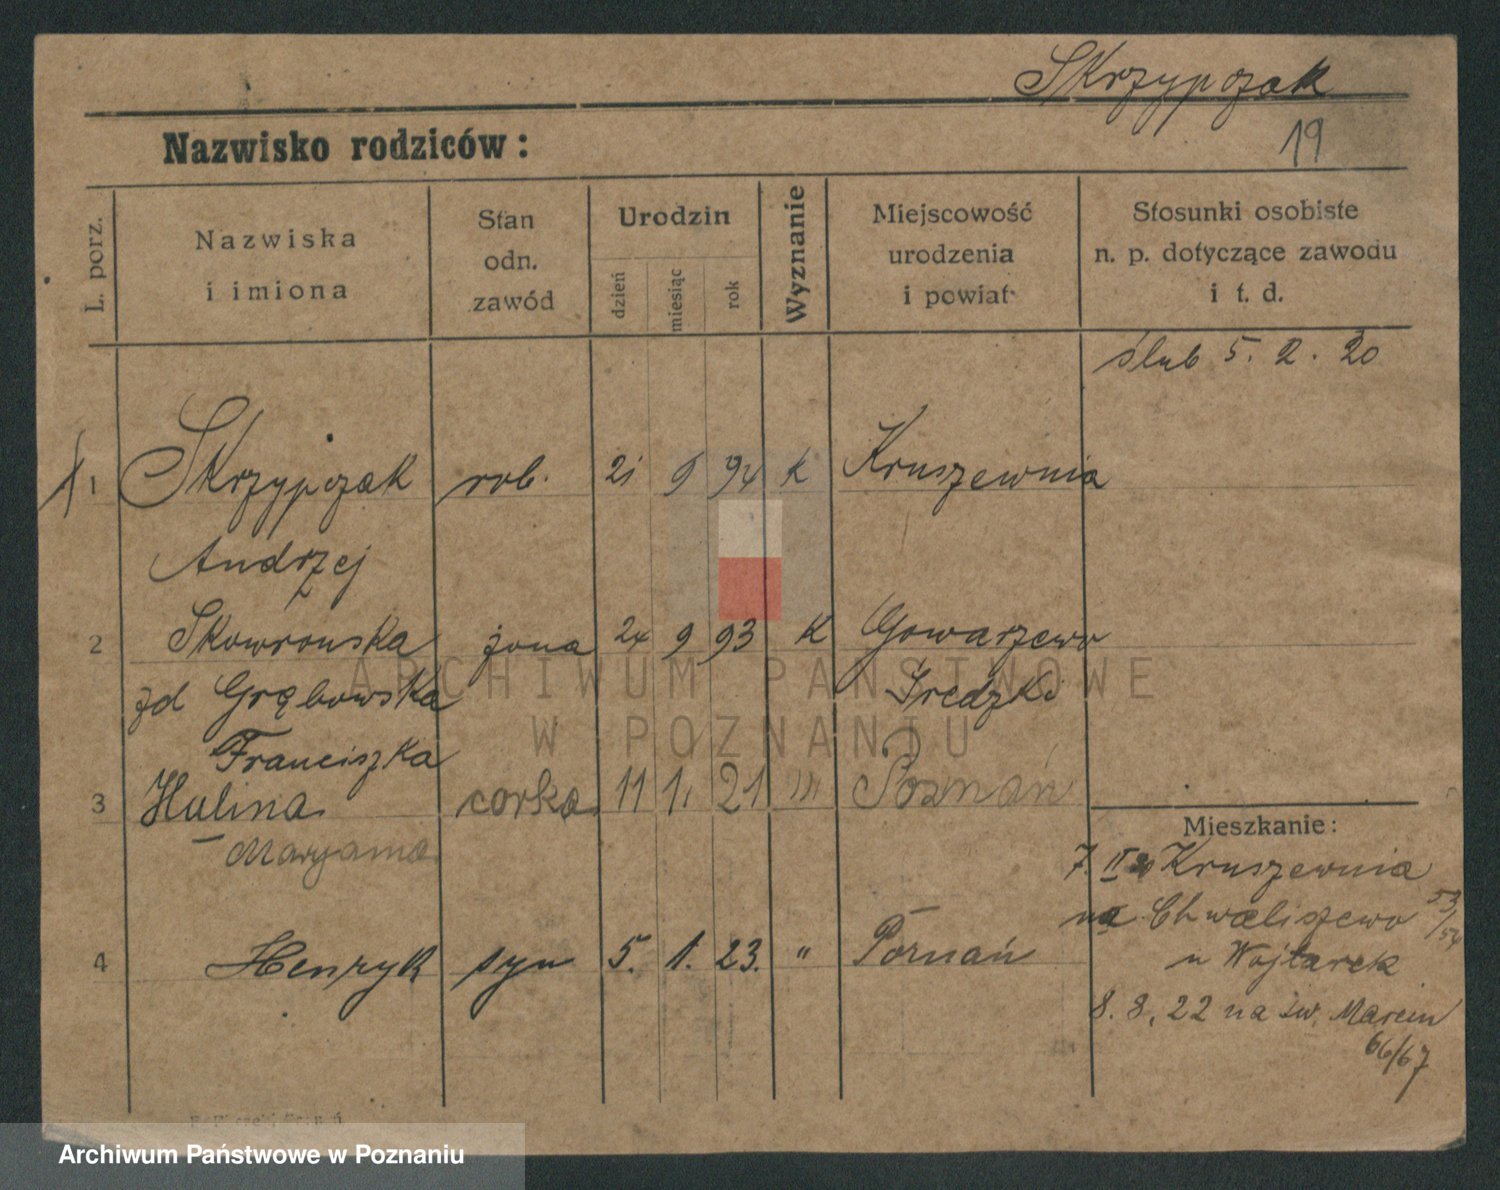 Skrzypczak
19
Nazwisko rodziców:
L. porz.
Nazwiska
i imiona
Stan
odn.
zawód
Urodzin
dzień
miesiąc
rok
Wyznanie
Miejscowość
urodzenia
i powiat
Stosunki osobiste
n. p. dotyczące zawodu
i t. d.
ślub 5. 2. 20
1 Skrzypczak rob. 21 9 94 k Kruszewnia
Andrzej
2 Skowronska żona 24 9 93 k Gowarzewo
zd Grąbowska Sredzki
Franciszka
3 Halina corka 11 1. 21 " Poznań
Maryanna
Mieszkanie:
7. II 20 Kruszewnia
na Chwaliszewo 53/54
u Wojtarek
4 Henryk syn 5. 1. 23. " Poznań
8. 8. 22 na św. Marcin
66/67
ARCHIWUM PAŃSTWOWE
W POZNANIU
Archiwum Państwowe w Poznaniu